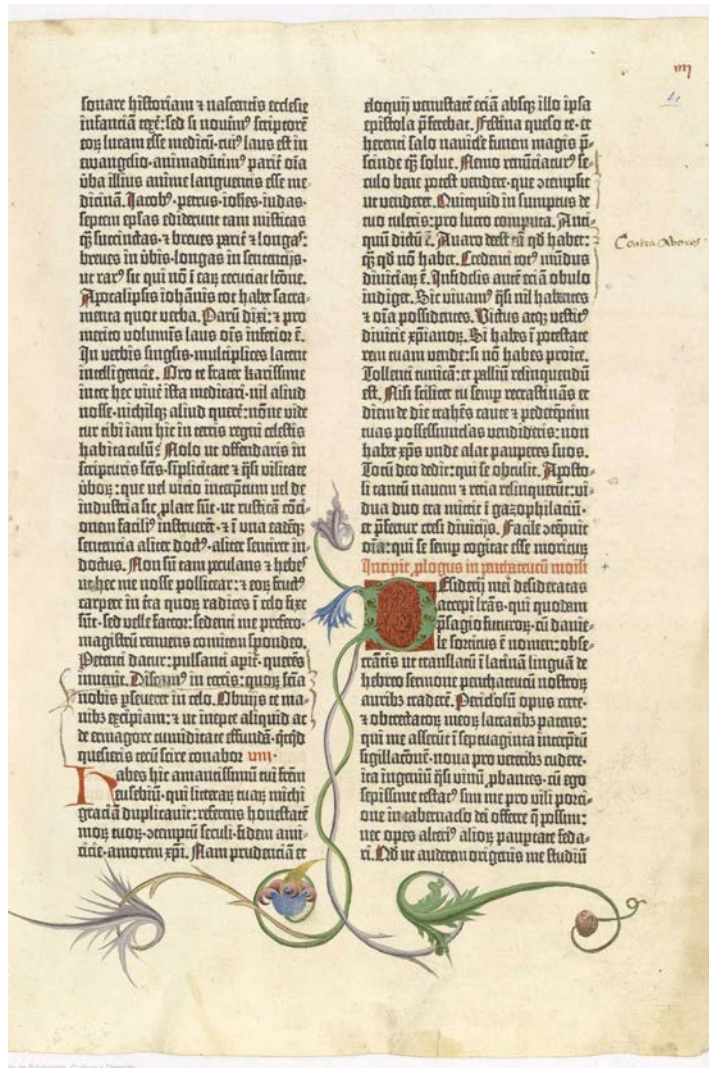 sonare historiam ⁊ nascentis ecclesie
infanciā texē: sed si nouim⁹ scriptorē
eoꝝ lucam esse medicū· cui⁹ laus est in
ewangelio· animaduertim⁹ pariť oīa
ūba illius anime languentis esse me-
dicinā. Jacob⁹· petrus· ioħes· iudas·
septem epl̄as ediderunt tam misticas
qͣ̄ succinctas· ⁊ breues pariť ⁊ longas:
breues in ūbis· longas in sentencijs·
ut rar⁹ sit qui nō ī eaꝝ cecuciat lc̄one.
Apocalipsis iohānis tot habet sacra-
menta quot verba. Parū dixi: ⁊ pro
merito volumīs laus oīs inferior ē.
In verbis singl̄is· multiplices latent
intelligencie. Oro te frater karissime
inter hec viuē· ista meditari· nil aliud
nosse· nichilqꝫ aliud querē: nōne vide
tur tibi iam hic in terris regni celestis
habitaculū? Nolo ut offendaris in
scripturis sc̄is· sīplicitate ⁊ qͣsi vilitate
ūboꝝ: que uel vicio interp̄tum uel de
industria sic plate sūt· ut rusticā cōci-
onem faciliꝰ instruerēt· ⁊ ī una eadēqꝫ
sentencia aliter doct⁹· aliter sentiret in-
doctus. Non sū tam petulans ⁊ hebes
ut hec me nosse pollicear: ⁊ eoꝝ fruct⁹
carpere in tr̄a quoꝝ radices ī celo fixe
sūt· sed velle fateor: sedenti me prefero·
magistrū renuens comitem spondeo.
Petenti datur: pulsanti aperiť· querēs
inuenit. Discam⁹ in terris: quoꝝ scīa
nobis ꝑseueret in celo. Obuijs te ma-
nibꝫ excipiam: ⁊ ut inepte aliquid ac
de ermagore tumiditate effundā· qͥcqͥd
quesieris tecū scire conabor viii·
Habes hic amantissimū tui fr̄em
eusebiū· qui litteraꝝ tuaꝝ michi
graciā duplicauit: referens honestatē
moꝝ tuoꝝ· ꝯtemptū seculi· fidem ami-
cicie· amorem xp̄i. Nam prudenciā et
eloquij venustatē eciā absqꝫ illo ipsa
epistola p̄ferebat. Festina queso te· et
herenti salo nauicl̄e funem magis p̄-
scinde qͣ̄ solue. Nemo renūciatur⁹ se-
culo bene potest vendere· que ꝯtempsit
ut venderet. Quicquid in sumptus de
tuo tuleris: pro lucro computa. Anti-
quū dictū ē. Auaro deest tā qd̄ habet:
qͣ̄ qd̄ nō habet. Credenti tot⁹ mūdus
diuiciaꝝ ē. Infidelis autē eciā obulo
indiget. Sic viuam⁹ qͣsi nil habentes
⁊ oīa possidentes. Victus atqꝫ vestit⁹
diuicie xp̄ianoꝝ. Si habes ī potestate
rem tuam vende: si nō habes proice.
Tollenti tunicā: et palliū relinquendū
est. Nisi scilicet tu semꝑ recrastinās et
diem de die trahēs caute ⁊ pedetēptim
tuas possessiuncl̄as vendideris: non
habet xp̄s unde alat pauperes suos.
Totū deo dedit: qui se obtulit. Aposto-
li tantū nauem ⁊ retia relinquerūt: vi-
dua duo era mittit ī gazophilaciū·
et p̄fertur cresi diuicijs. Facile ꝯtepnit
oīa: qui se semꝑ cogitat esse moriturꝫ
Incipit ꝓlogus in pentateucū moisi
Desiderij mei desideratas
accepi lr̄as· qui quodam
p̄sagio futuroꝝ· cū danie-
le sortitus ē nomen: obse-
crātis ut translatū ī latinā linguā de
hebreo sermone penthateucū nostroꝝ
auribꝫ traderē. Periculosū opus certe·
⁊ obtrectatoꝝ meoꝝ latratibꝫ patens:
qui me asserūt ī septuaginta interp̄tū
sigillacōnē· noua pro veteribꝫ cudere·
ita ingeniū qͣsi vinū ꝓbantes· cū ego
sepissime testat⁹ sim me pro vili porci-
one in tabernaclo dei offerre q̄ possim:
nec opes alteri⁹ alioꝝ paupertate feda-
ri. Qd̄ ut auderem origenis me studiū